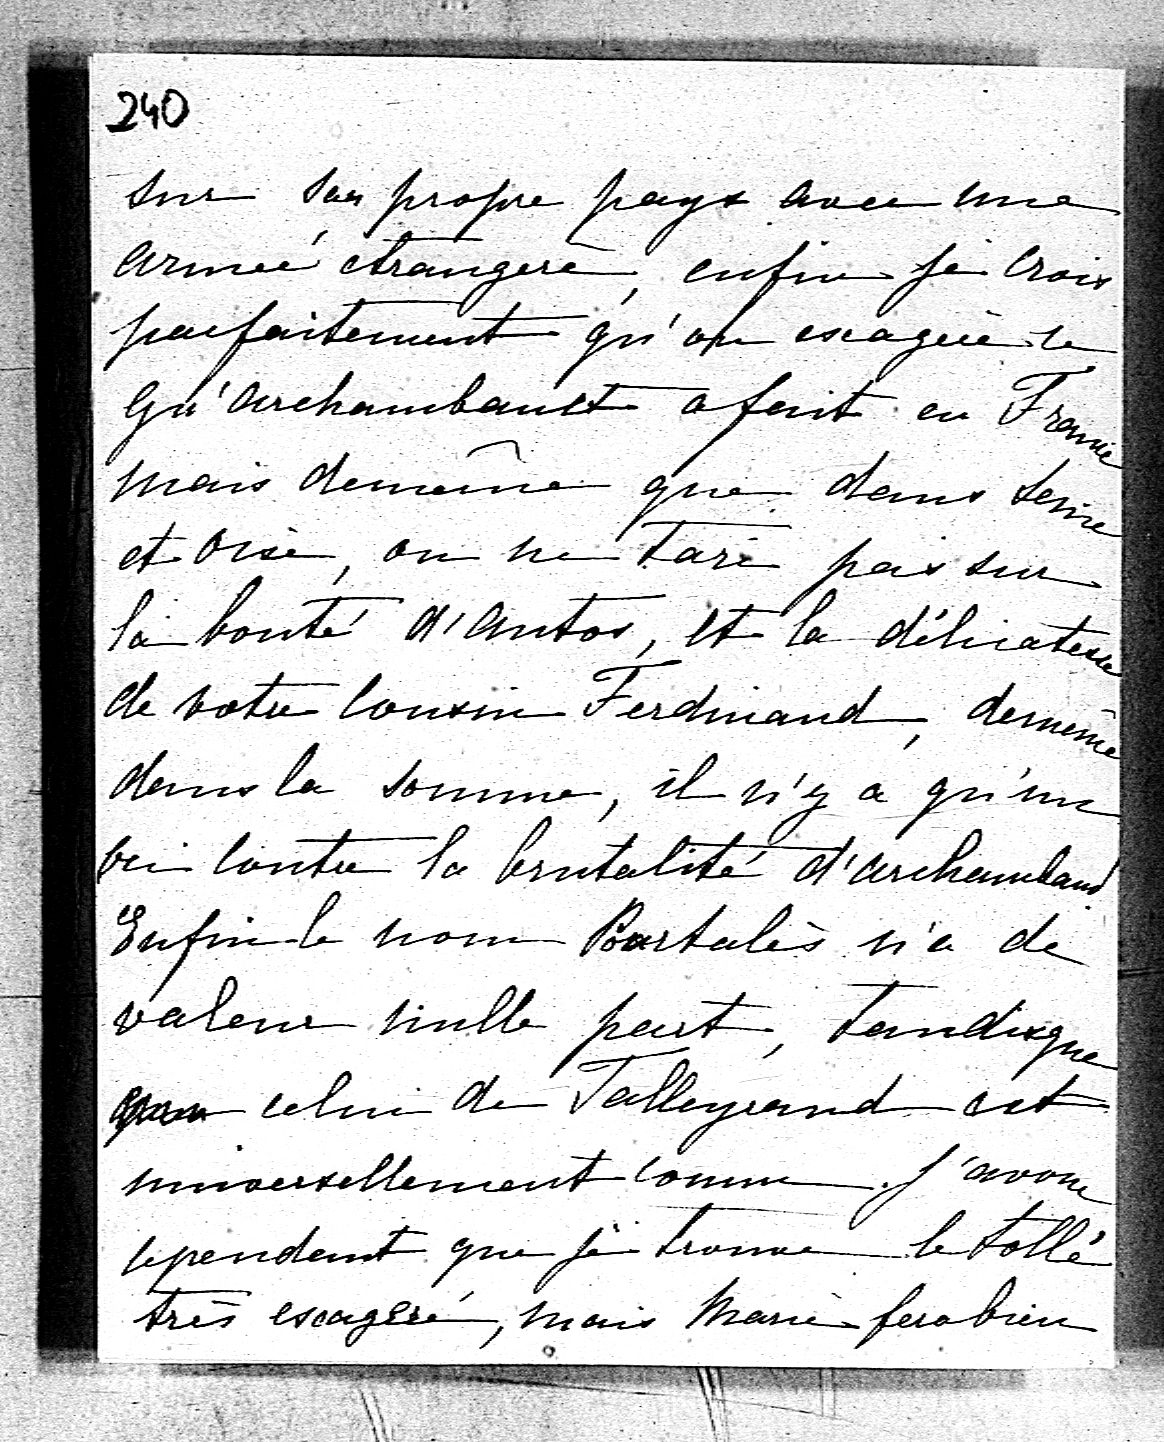 240
sur son propre pays avec une
armée étrangère, enfin je crois
parfaitement qu'on exagère ce
qu'archambault a fait en France
mais demême que dans Seine
et Oise, on ne tari pas sur
la bonté d'Antos, et la délicatesse
de votre cousin Ferdinand, demême
dans la Somme, il n'y a qu'un
cri contre la brutalité d'archambaud
Enfin le nom Pourtalès n'a de
valeur nulle part, tandisque
celui de Talleyrand est
universellement connu. J'avoue
cependant que je trouve le tollé
très exagéré, mais Marie fera bien